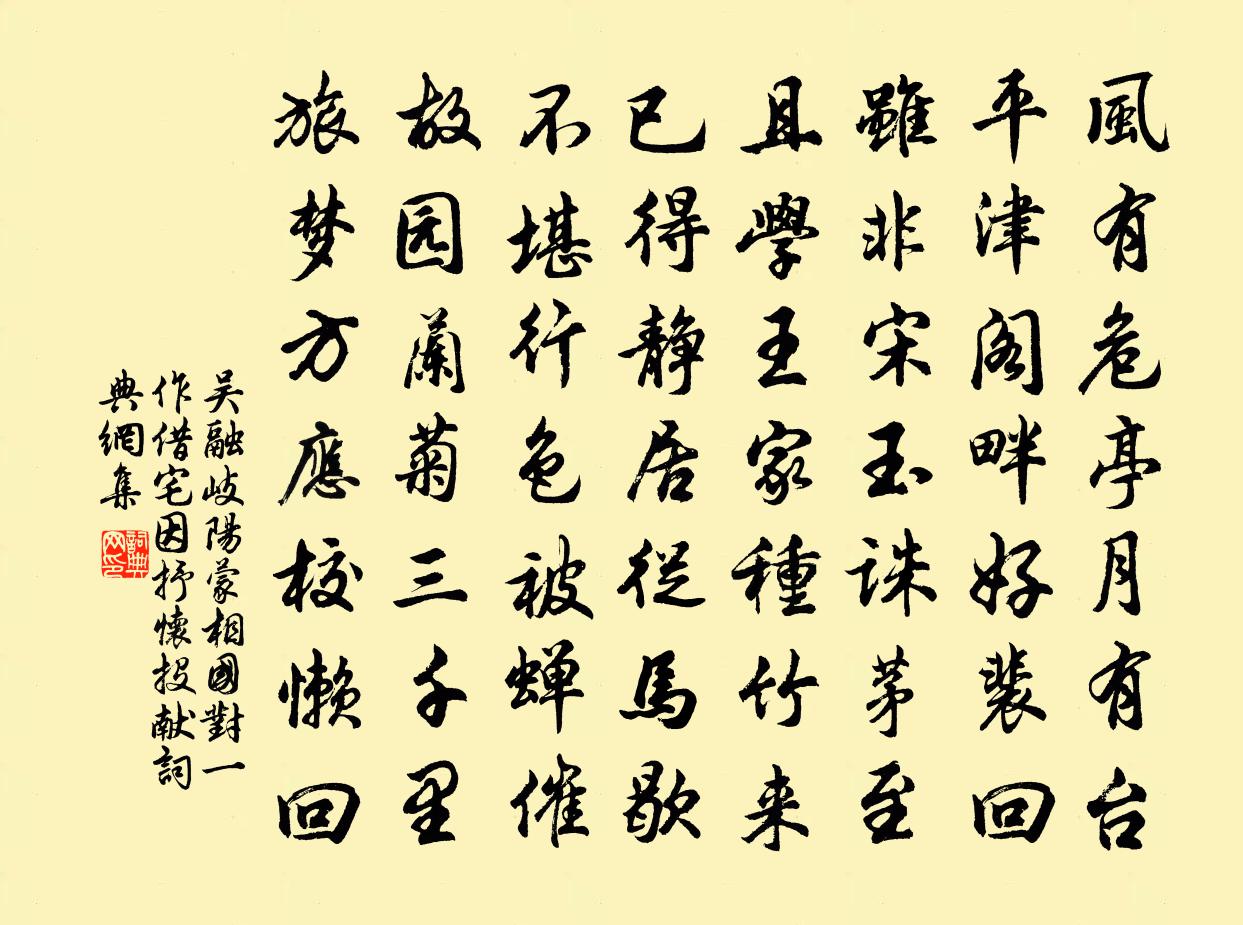 風有危亭月有台
平津阁畔好裴回
雖非宋玉誅茅至
且學王家種竹来
已得静居従馬歇
不堪行色被蝉催
故园蘭菊三千里
旅梦方應校懒回
吴融岐陽蒙相國對一
作借宅因抒懷投献詞
典網集
詞典网印